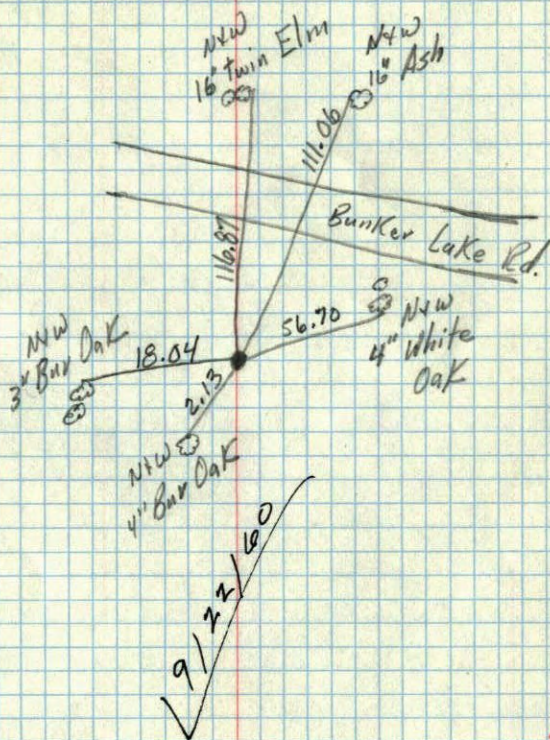 N+W
16" twin Elm
N+W
16" Ash
111.06
116.87
Bunker Lake Rd.
56.70
N+W
4" White
Oak
N+W
3" Bur Oak
18.04
2.13
N+W
4" Bur Oak
9/22/60